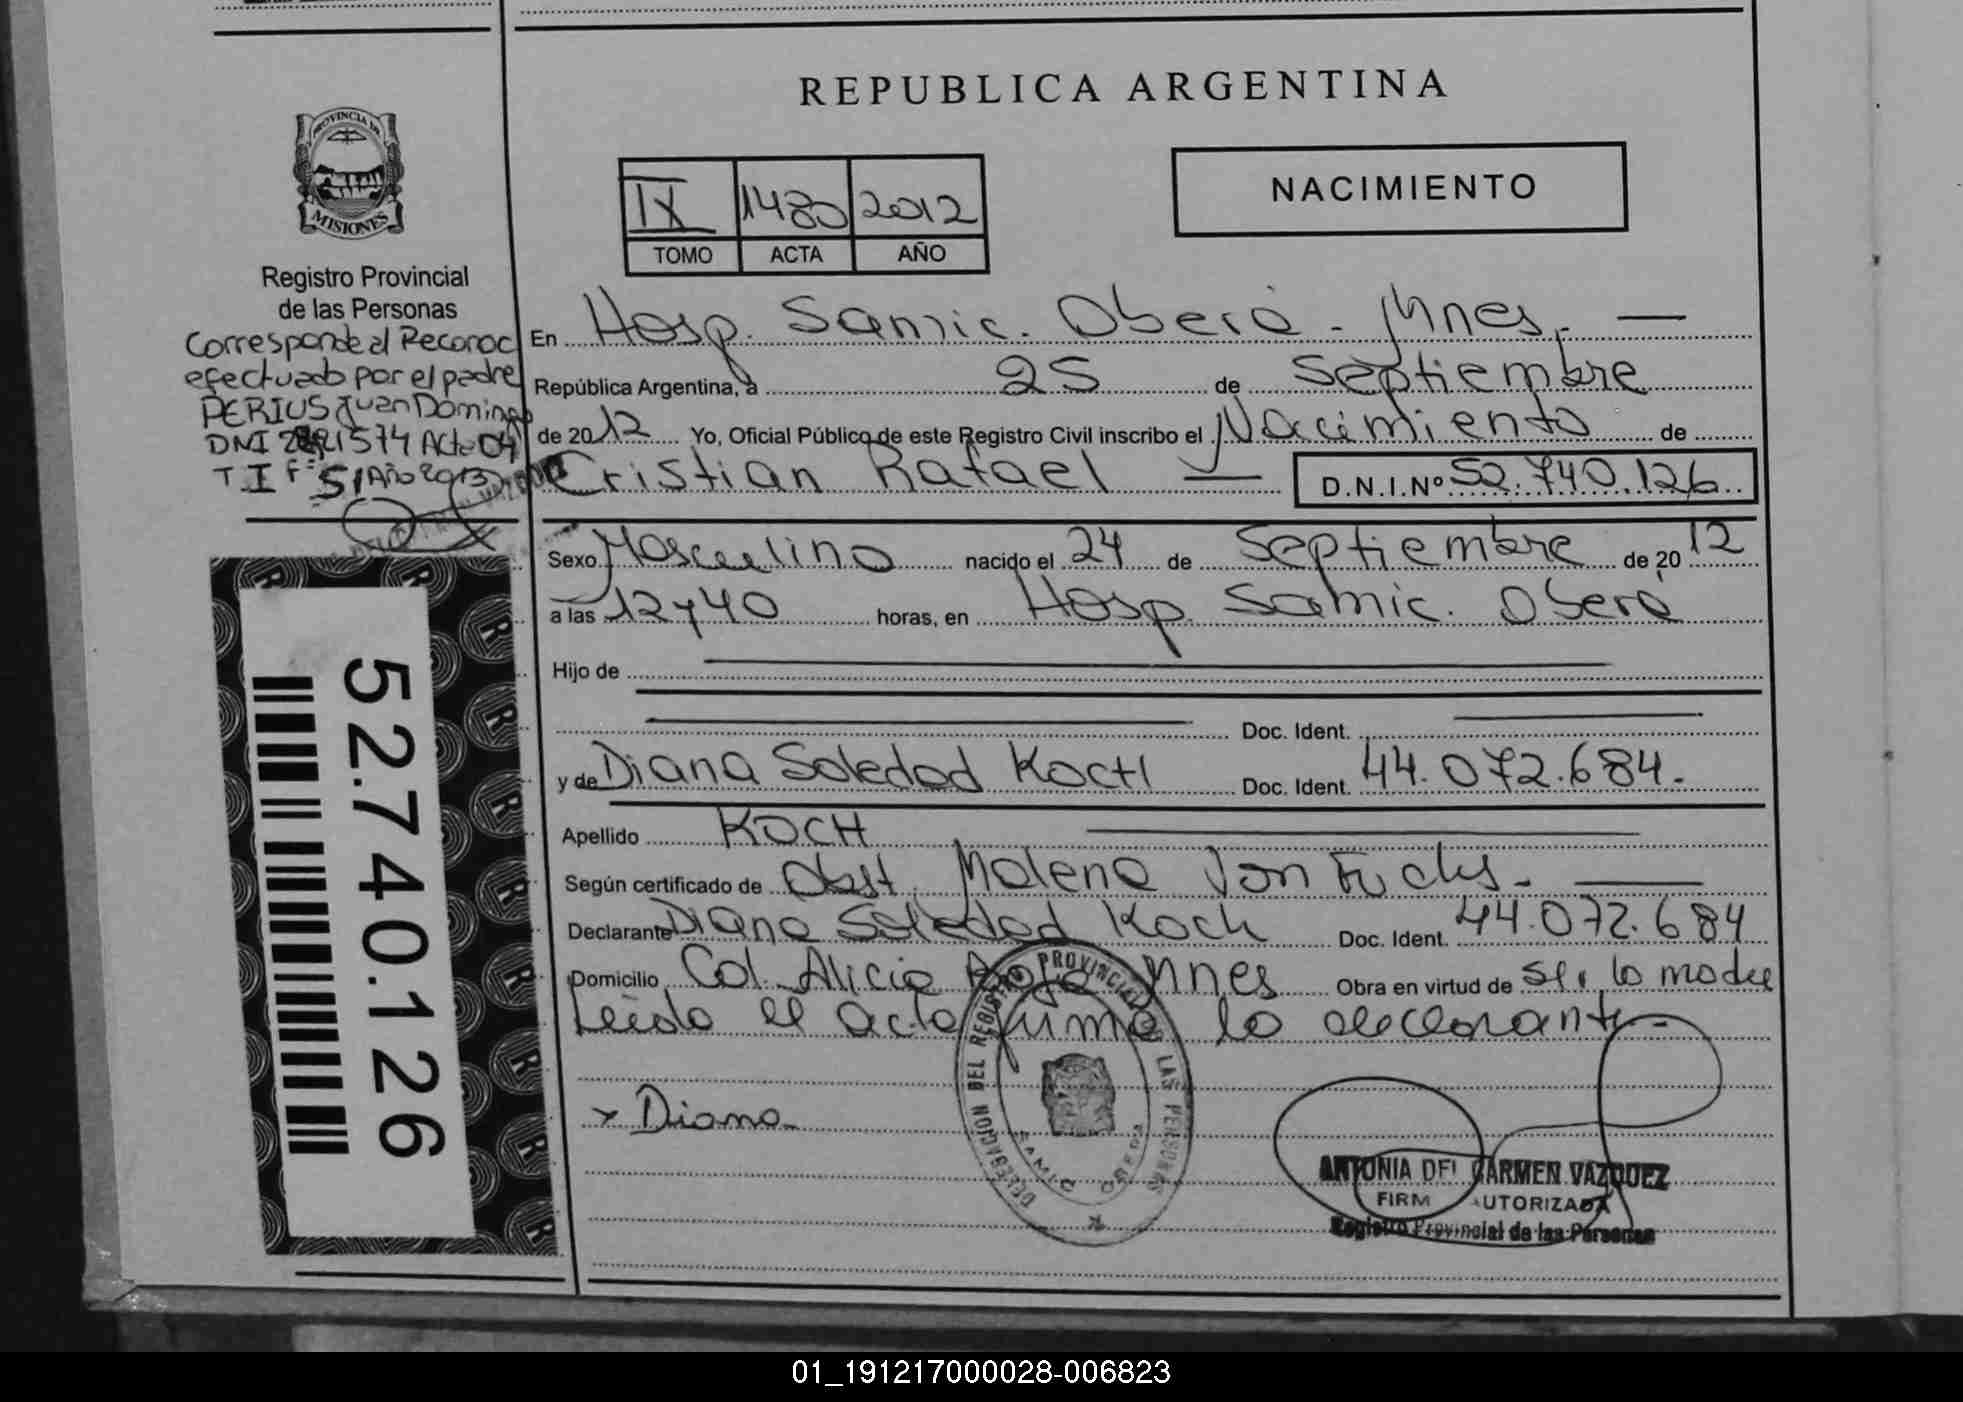 REPUBLICA ARGENTINA
PROVINCIA DE
MISIONES
Registro Provincial
de las Personas
Corresponde al Reconoc
efectuado por el padre
PERIUS Juan Domingo
DNI 1574 Acta 04
T I Fº 51 Año 2013
IX 1480 2012
TOMO ACTA AÑO
NACIMIENTO
En Hosp. Samic. Oberá - Mnes. —
República Argentina, a 25 de Septiembre
de 2012 Yo, Oficial Público de este Registro Civil inscribo el Nacimiento de
Cristian Rafael — D.N.I.Nº 52.740.126
Sexo Masculino nacido el 24 de Septiembre de 2012
a las 12 y 40 horas, en Hosp. Samic. Oberá
Hijo de
Doc. Ident.
y de Diana Soledad Koch Doc. Ident. 44.072.684.
Apellido KOCH
Según certificado de Obst. Malena Von Fuchs. —
Declarante Diana Soledad Koch Doc. Ident. 44.072.684
Domicilio Col. Alicia Mnes Obra en virtud de ser la madre
Leída el acta firma la declarante -
x Diana
DELEGACION DEL REGISTRO PROVINCIAL DE LAS PERSONAS
SAMIC OBERA
ANTONIA DEL CARMEN VAZQUEZ
FIRM AUTORIZADA
Registro Provincial de las Personas
52.740.126
01_191217000028-006823